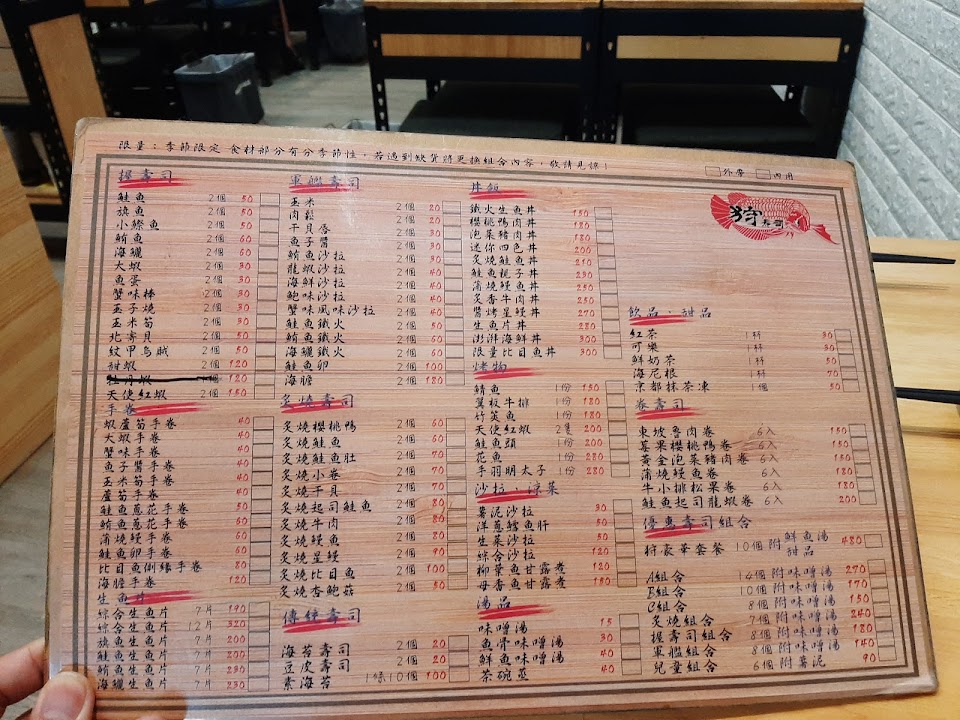 限量：季節限定 食材部分有分季節性，若遇到缺貨將更換組合內容，敬請見諒！
外帶 內用
狩 寿司
握壽司
鮭魚 2個 50
旗魚 2個 50
小鰶魚 2個 50
鮪魚 2個 60
海鱺 2個 60
大蝦 2個 30
魚蛋 2個 30
蟹味棒 2個 30
玉子燒 2個 30
玉米筍 2個 30
北寄貝 2個 50
紋甲烏賊 2個 50
甜蝦 2個 120
牡丹蝦 1個 120
天使紅蝦 2個 150
手卷
蝦蘆筍手卷 40
大蝦手卷 40
蟹味手卷 40
魚子醬手卷 40
玉米筍手卷 40
蘆筍手卷 40
鮭魚蔥花手卷 50
鮪魚蔥花手卷 60
蒲燒鰻手卷 60
鮭魚卵手卷 60
比目魚側緣手卷 80
海膽手卷 120
生魚片
綜合生魚片 7片 190
綜合生魚片 12片 320
旗魚生魚片 7片 200
鮭魚生魚片 7片 200
鮪魚生魚片 7片 230
海鱺生魚片 7片 230
軍艦壽司
玉米 2個 20
肉鬆 2個 20
干貝唇 2個 30
魚子醬 2個 30
鮪魚沙拉 2個 30
龍蝦沙拉 2個 40
海鮮沙拉 2個 40
鮑味沙拉 2個 40
蟹味風味沙拉 2個 40
鮭魚鐵火 2個 50
鮪魚鐵火 2個 60
海鱺鐵火 2個 60
鮭魚卵 2個 100
海膽 2個 180
炙燒壽司
炙燒櫻桃鴨 2個 60
炙燒鮭魚 2個 60
炙燒鮭魚肚 2個 70
炙燒小卷 2個 70
炙燒干貝 2個 70
炙燒起司鮭魚 2個 80
炙燒牛肉 2個 80
炙燒鰻 2個 80
炙燒星鰻 2個 90
炙燒比目魚 2個 100
炙燒杏鮑菇 2個 50
傳統壽司
海苔壽司 2個 20
豆皮壽司 2個 20
素海苔 1條10個 100
丼飯
鐵火生魚丼 150
櫻桃鴨肉丼 180
泡菜豬肉丼 180
迷你四色丼 200
炙燒鮭魚丼 210
鮭魚親子丼 230
蒲燒鰻魚丼 250
炙香牛肉丼 250
醬烤星鰻丼 270
生魚片丼 280
澎湃海鮮丼 300
限量比目魚丼 300
烤物
鯖魚 1份 150
翼板牛排 1份 180
竹筴魚 1份 180
天使紅蝦 2隻 200
鮭魚頭 1份 200
花魚 1份 280
手羽明太子 1份 280
沙拉．涼菜
薯泥沙拉 30
洋蔥鱈魚肝 50
生菜沙拉 50
綜合沙拉 120
柳葉魚甘露煮 120
母香魚甘露煮 180
湯品
味噌湯 15
魚骨味噌湯 30
鮮魚味噌湯 40
茶碗蒸 40
飲品．甜品
紅茶 1杯 30
可樂 1杯 30
鮮奶茶 1杯 50
海尼根 1杯 70
京都抹茶凍 1個 50
卷壽司
東坡魯肉卷 6入 150
蔓果櫻桃鴨卷 6入 150
黃金泡菜豬肉卷 6入 150
蒲燒鰻魚卷 6入 180
牛小排松果卷 6入 180
鮭魚起司龍蝦卷 6入 200
優惠壽司組合
狩豪華套餐 10個 附鮮魚湯 甜品 480
A組合 14個 附味噌湯 270
B組合 10個 附味噌湯 170
C組合 8個 附味噌湯 150
炙燒組合 7個 附味噌湯 240
握壽司組合 8個 附味噌湯 180
軍艦組合 8個 附味噌湯 140
兒童組合 6個 附薯泥 90